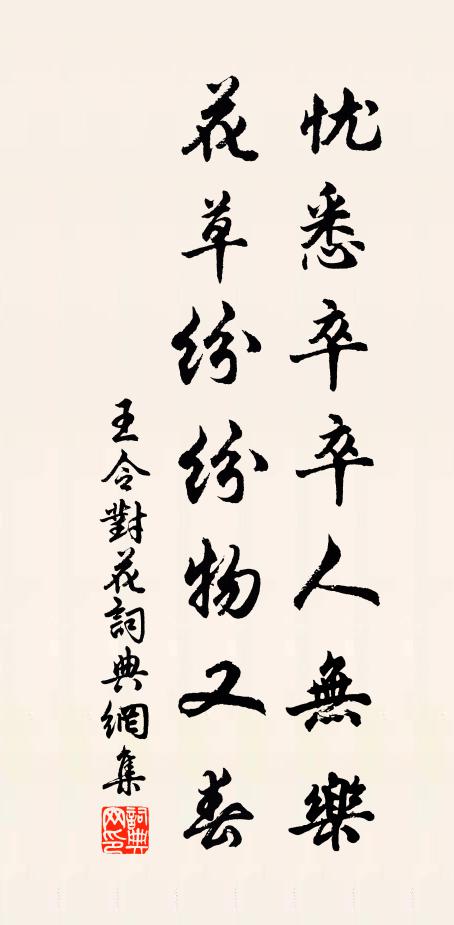 忧悉卒卒人無樂
花草纷纷物又春
王令對花詞典網集
詞典網印